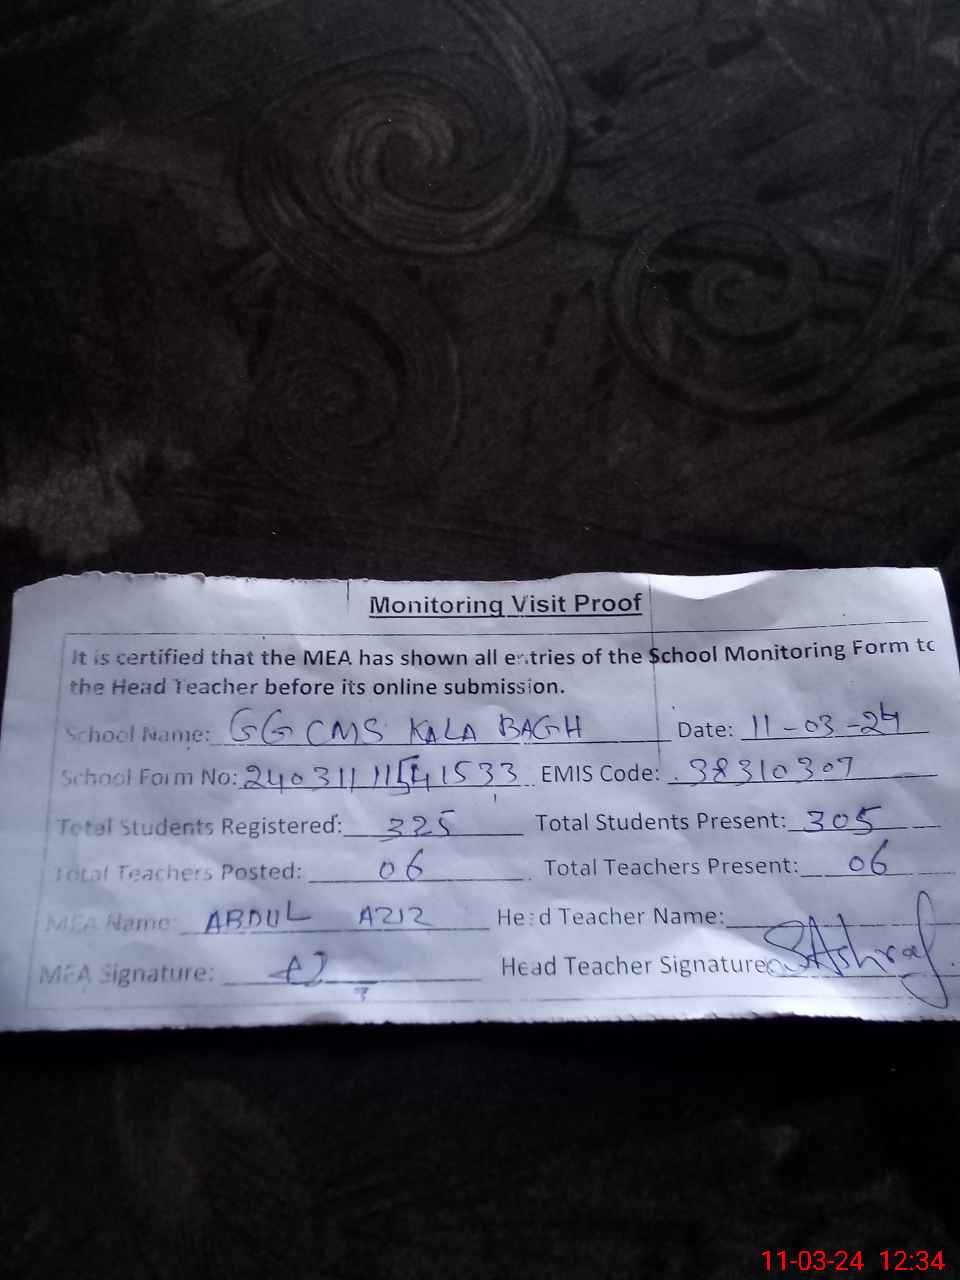 Monitoring Visit Proof
It is certified that the MEA has shown all entries of the School Monitoring Form to
the Head Teacher before its online submission.
School Name: GGCMS KALA BAGH Date: 11-03-24
School Form No: EMIS Code: 38310307
Total Students Registered: 325 Total Students Present: 305
Total Teachers Posted: 06 Total Teachers Present: 06
MEA Name: ABDUL AZIZ Head Teacher Name:
MEA Signature: Head Teacher Signature SAshraf.
11-03-24 12:34